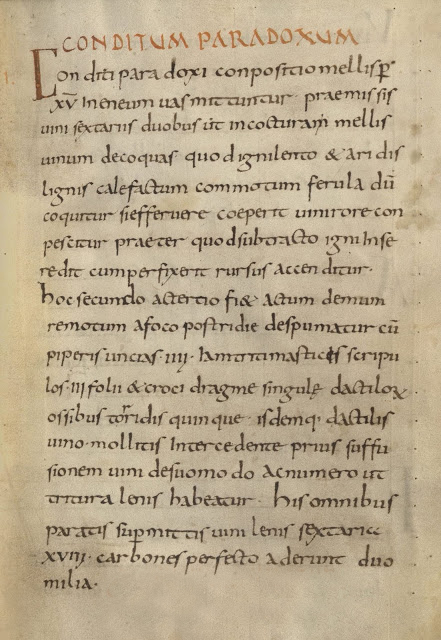 CONDITUM PARADOXUM
Conditi paradoxi conpositio mellis p̄
xv̄ In eneum uas mittuntur · praemissis
uini sextariis duobus ut in cocturam mellis
uinum decoquas · quod igni lento & aridis
lignis calefactum commotum ferula dū
coquitur si efferuere coeperit uini rore con
pescitur praeter quod subtracto igni In se
redit cum perfrixerit rursus accenditur ·
hoc secundo ac tertio fi& ac tum demum
remotum a foco postridie despumatur cū
piperis uncias · IIII · Iam triti masticis scripu
los · III folii & croci dragme singulę dactiloꝝ
ossibus torridis quinque · isdemq; dactilis
uino · mollitis Intercedente prius suffu
sionem uini de suo modo ac numero ut
tritura lenis habeatur · his omnibus
paratis sup̄mittis uini lenis sextaria
XVIII · carbones perfecto aderunt duo
milia ·